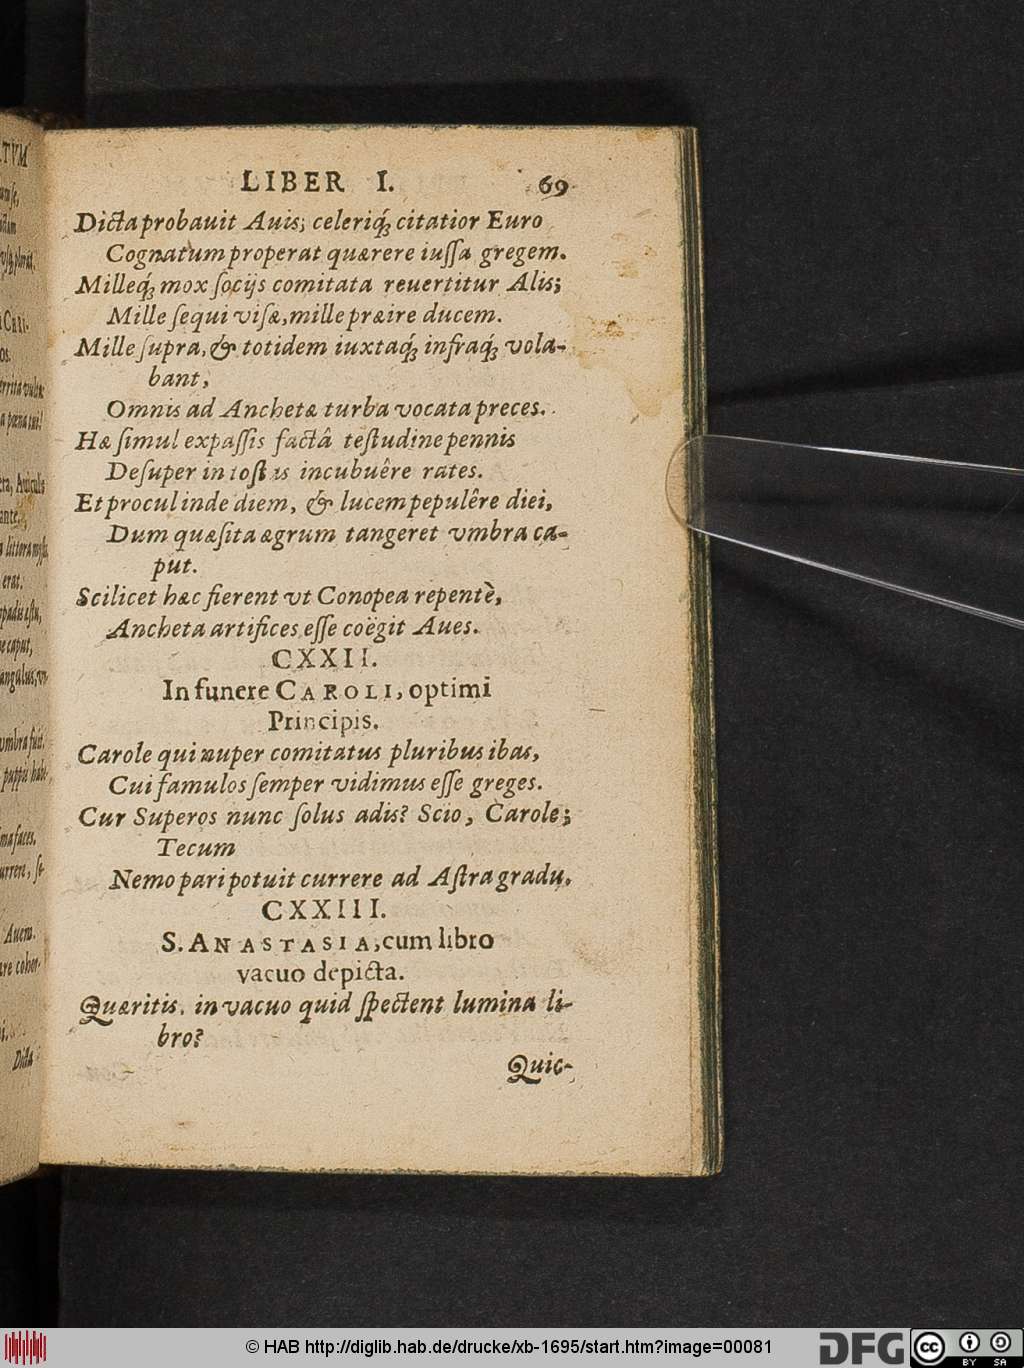 LIBER I. 69
Dicta probauit Auis; celeriq́; citatior Euro
Cognatum properat quærere iussa gregem.
Milleq́; mox socijs comitata reuertitur Alis;
Mille sequi visæ, mille præire ducem.
Mille supra, & totidem iuxtaq́; infraq́; vola-
bant,
Omnis ad Anchetæ turba vocata preces.
Hæ simul expassis factâ testudine pennis
Desuper in tostas incubuêre rates.
Et procul inde diem, & lucem pepulêre diei,
Dum quæsita ægrum tangeret vmbra ca-
put.
Scilicet hæc fierent vt Conopea repentè,
Ancheta artifices esse coëgit Aues.
CXXII.
In funere CAROLI, optimi
Principis.
Carole qui nuper comitatus pluribus ibas,
Cui famulos semper vidimus esse greges.
Cur Superos nunc solus adis? Scio, Carole;
Tecum
Nemo pari potuit currere ad Astra gradu.
CXXIII.
S. ANASTASIA, cum libro
vacuo depicta.
Quæritis, in vacuo quid spectent lumina li-
bro?
Quic-
© HAB http://diglib.hab.de/drucke/xb-1695/start.htm?image=00081
DFG
cc BY SA